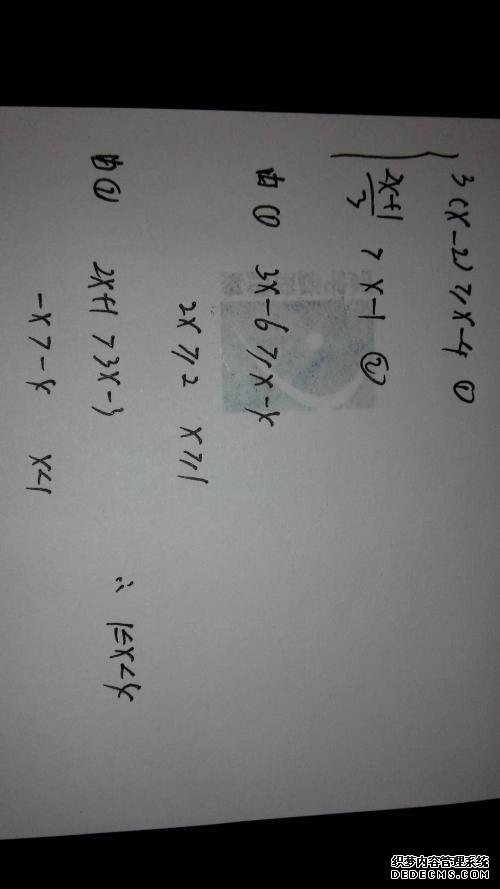 3(x-2)≥x-4 ①
2x+1/3 > x-1 ②
由① 3x-6≥x-4
2x≥2 x≥1
由② 2x+1>3x-3
-x>-4 x<1
∴ 1≤x<4
织梦内容管理系统
DEDECMS.COM